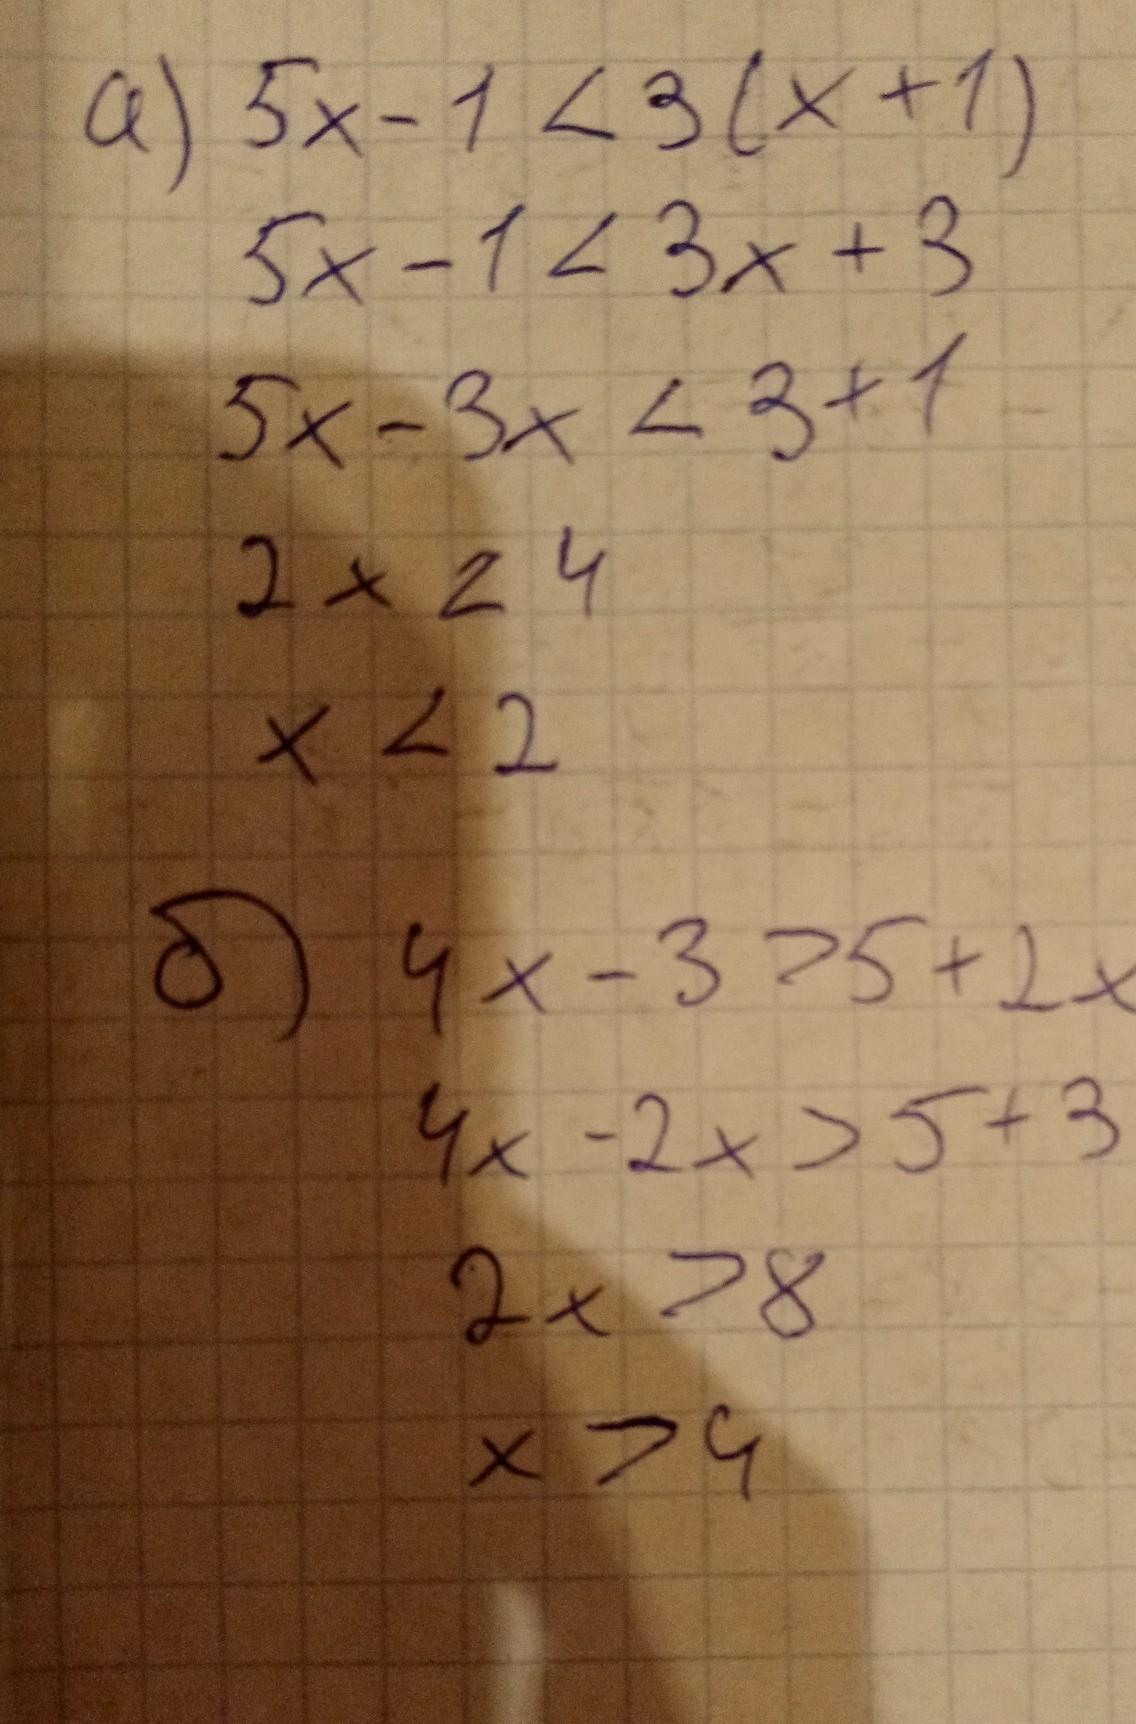 а) 5x-1<3(x+1)
5x-1<3x+3
5x-3x<3+1
2x<4
x<2
б) 4x-3>5+2x
4x-2x>5+3
2x>8
x>4